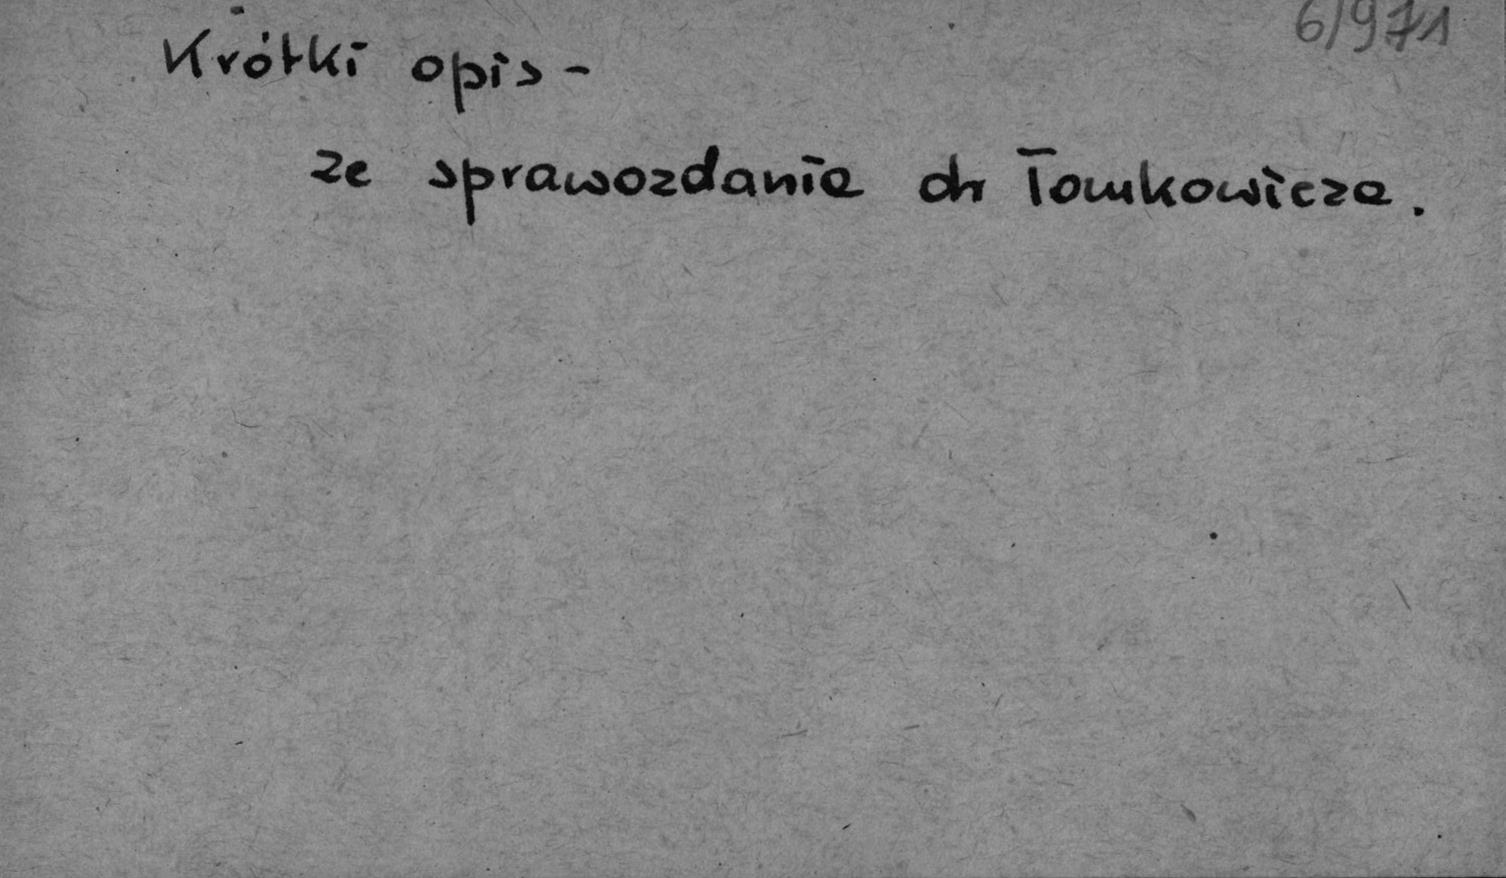 6/971
Krótki opis -
ze sprawozdania dr Tomkowicza.